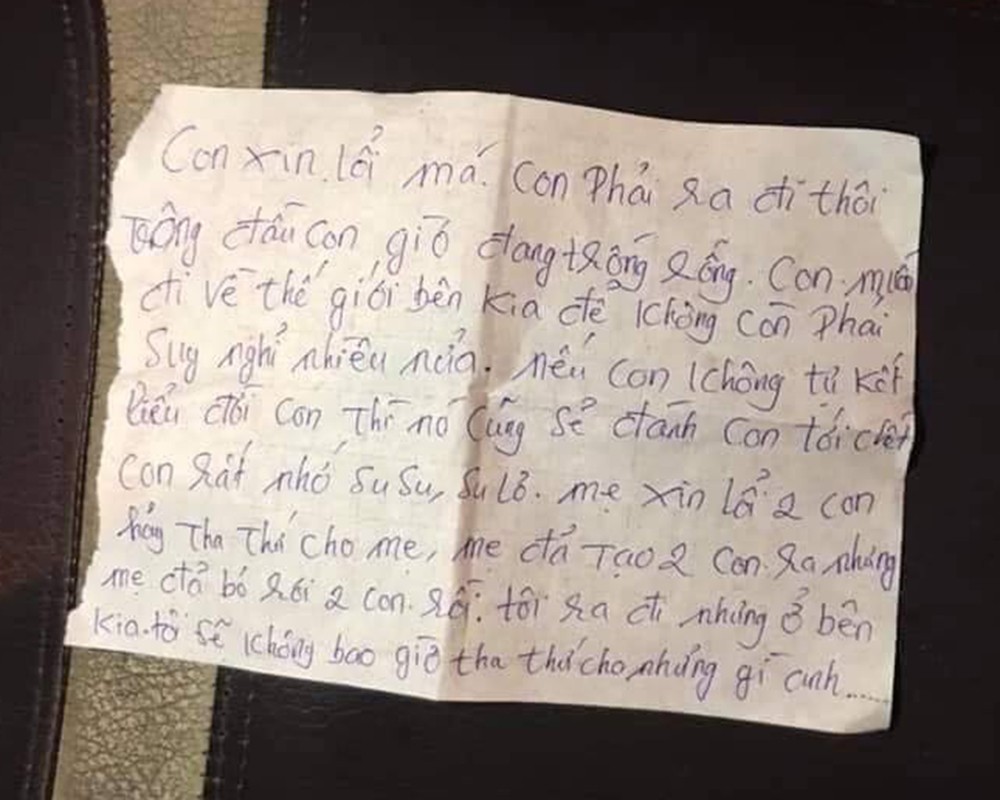 Con xin lổi má. Con Phải ra đi thôi
Trông đầu con giờ đang trống rống. Con muốn
đi về thế giới bên kia để không còn Phải
Suy nghỉ nhiều nửa. nếu con không tự kết
liểu đời con Thì nó Cũng sẻ đánh con tới chết
Con rất nhớ SuSu, Su Lô. mẹ xin lổi 2 con
hảy Tha Thứ cho mẹ, mẹ đả Tạo 2 con ra nhưng
mẹ đả bỏ rơi 2 con rồi. tôi ra đi nhưng ở bên
kia tôi sẽ không bao giờ tha thứ cho nhưng gì anh......